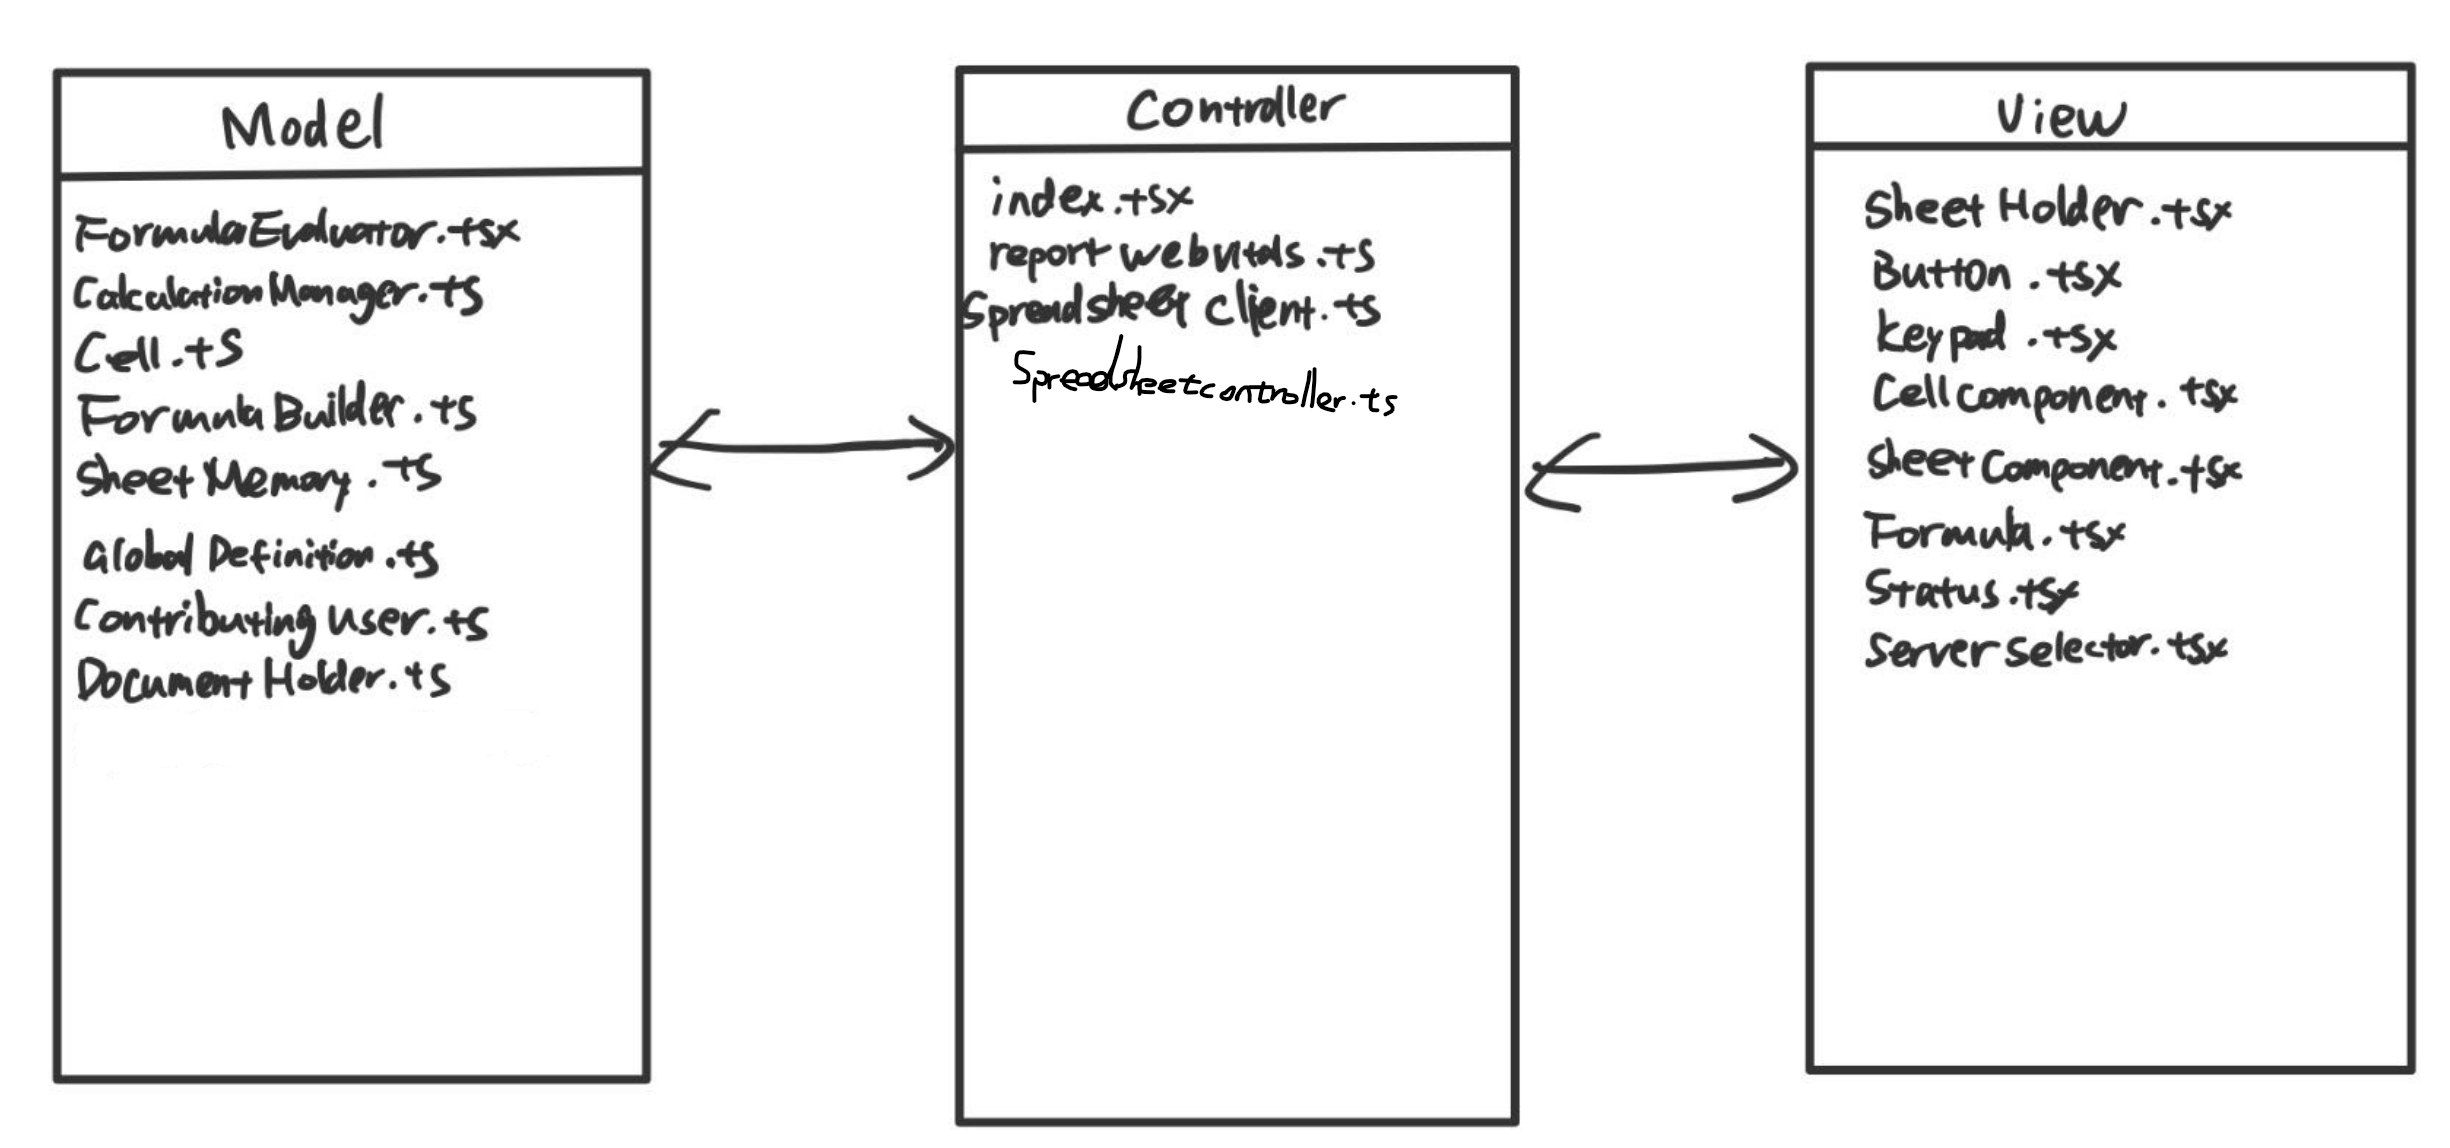 Model
FormulaEvaluator.tsx
CalculationManager.ts
Cell.ts
Formula Builder.ts
Sheet Memory.ts
Global Definition.ts
Contributing User.ts
Document Holder.ts
Controller
index.tsx
report webvitals.ts
Spreadsheet Client.ts
Spreadsheetcontroller.ts
View
Sheet Holder.tsx
Button.tsx
keypad.tsx
Cell component.tsx
Sheet Component.tsx
Formula.tsx
Status.tsx
Server Selector.tsx